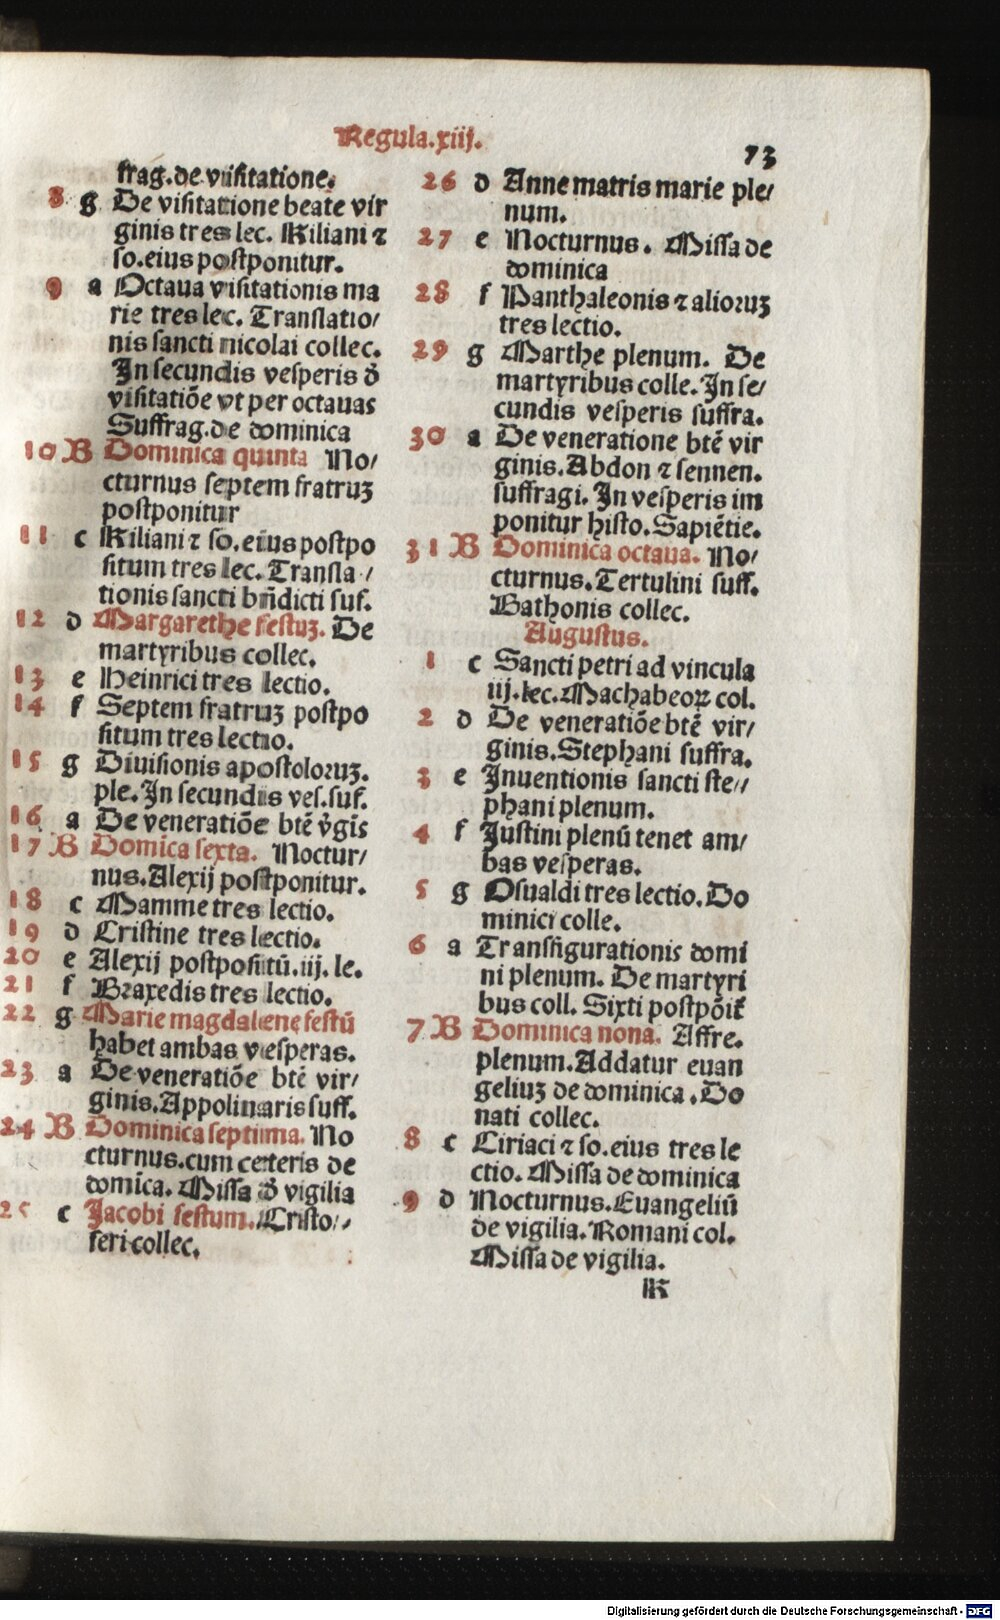 Regula.xiij.
73
frag.de visitatione.
8 g De visitatione beate vir
ginis tres lec. Kiliani ⁊
so.eius postponitur.
9 a Octaua visitationis ma
rie tres lec. Translatio/
nis sancti nicolai collec.
In secundis vesperis d̄
visitatiōe vt per octauas
Suffrag.de dominica
10 B Dominica quinta No/
cturnus septem fratruꝫ
postponitur
11 c Kiliani ⁊ so.eius postpo
situm tres lec. Transla/
tionis sancti bn̄dicti suf.
12 d Margarethe festuꝫ. De
martyribus collec.
13 e Heinrici tres lectio.
14 f Septem fratruꝫ postpo
situm tres lectio.
15 g Diuisionis apostoloruꝫ.
ple. In secundis ves.suf.
16 a De veneratiōe btē v̄gīs
17 B Domīca sexta. Noctur/
nus.Alexij postponitur.
18 c Mamme tres lectio.
19 d Cristine tres lectio.
20 e Alexij postpositū.iij. le.
21 f Braxedis tres lectio.
22 g Marie magdalenę festū
habet ambas vesperas.
23 a De veneratiōe btē vir/
ginis.Appolinaris suff.
24 B Dominica septima. No
cturnus.cum ceteris de
domīca. Missa d̄ vigilia
25 c Jacobi festum. Cristo/
feri collec.
26 d Anne matris marie ple/
num.
27 e Nocturnus. Missa de
dominica
28 f Panthaleonis ⁊ alioruꝫ
tres lectio.
29 g Marthe plenum. De
martyribus colle. In se/
cundis vesperis suffra.
30 a De veneratione btē vir
ginis. Abdon ⁊ sennen.
suffragi. In vesperis im
ponitur histo. Sapiētie.
31 B Dominica octaua. No/
cturnus. Tertulini suff.
Bathonis collec.
Augustus.
1 c Sancti petri ad vincula
iij.lec. Machabeoꝝ col.
2 d De veneratiōe btē vir/
ginis.Stephani suffra.
3 e Inuentionis sancti ste//
phani plenum.
4 f Justini plenū tenet am/
bas vesperas.
5 g Osualdi tres lectio. Do
minici colle.
6 a Transfigurationis domi
ni plenum. De martyri
bus coll. Sixti postpōit᷑
7 B Dominica nona. Affre.
plenum. Addatur euan
geliuꝫ de dominica. Do
nati collec.
8 c Ciriaci ⁊ so.eius tres le
ctio. Missa de dominica
9 d Nocturnus. Euangeliū
de vigilia. Romani col.
Missa de vigilia.
K
Digitalisierung gefördert durch die Deutsche Forschungsgemeinschaft - DFG